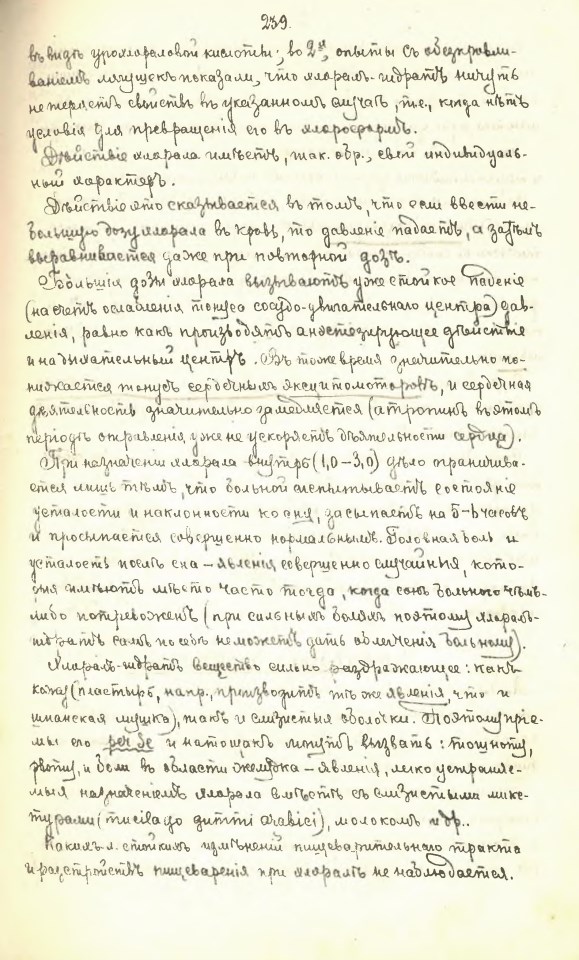 239.
въ видѣ урохлораловой кислоты; во 2х, опыты съ обезкровли-
ваніемъ лягушекъ показали, что хлоралъ-гидратъ ничуть
не теряетъ свойствъ въ указанномъ случаѣ, т.е., когда нѣтъ
условія для превращенія его въ хлороформъ.
Дѣйствіе хлорала имѣетъ, так. обр., свой индивидуаль-
ный характеръ.
Дѣйствіе это сказывается въ томъ, что если ввести не-
большую дозу хлорала въ кровь, то давленіе падаетъ, а затѣмъ
выравнивается даже при повторной дозѣ.
Большія дозы хлорала вызываютъ уже стойкое паденіе
(на счетъ ослабленія тонуса сосудо-двигательнаго центра) дав-
ленія, равно какъ производятъ анэстезирующее дѣйствіе
и на дыхательный центръ. Въ тоже время значительно по-
нижается тонусъ сердечныхъ эксцитомоторовъ, и сердечная
дѣятельность значительно замедляется (атропинъ въ этомъ
періодѣ отравленія уже не ускоряетъ дѣятельности сердца).
При назначеніи хлорала внутрь (1,0–3,0) дѣло ограничива-
ется лишь тѣмъ, что больной испытываетъ состояніе
усталости и наклонности ко сну, засыпаетъ на 5-6 часовъ
и просыпается совершенно нормальнымъ. Головная боль и
усталость послѣ сна – явленія совершенно случайныя, кото-
рыя имѣютъ мѣсто часто тогда, когда сонъ больного чѣмъ-
либо потревоженъ (при сильныхъ боляхъ поэтому хлоралъ-
гидратъ самъ по себѣ не можетъ дать облегченія больному).
Хлоралъ-гидратъ вещество сильно раздражающее: какъ
кожу (пластырь, напр., производитъ тѣ же явленія, что и
шпанская мушка), такъ и слизистыя оболочки. Поэтому пріе-
мы его per se и натощакъ могутъ вызвать: тошноту,
рвоту, и боли въ области желудка – явленія, легко устраняе-
мыя назначеніемъ хлорала вмѣстѣ съ слизистыми микс-
турами (mucilago gummi arabici), молокомъ и др..
Какихъ-л. стойкихъ измѣненій пищеварительнаго тракта
и разстройствъ пищеваренія при хлоралѣ не наблюдается.